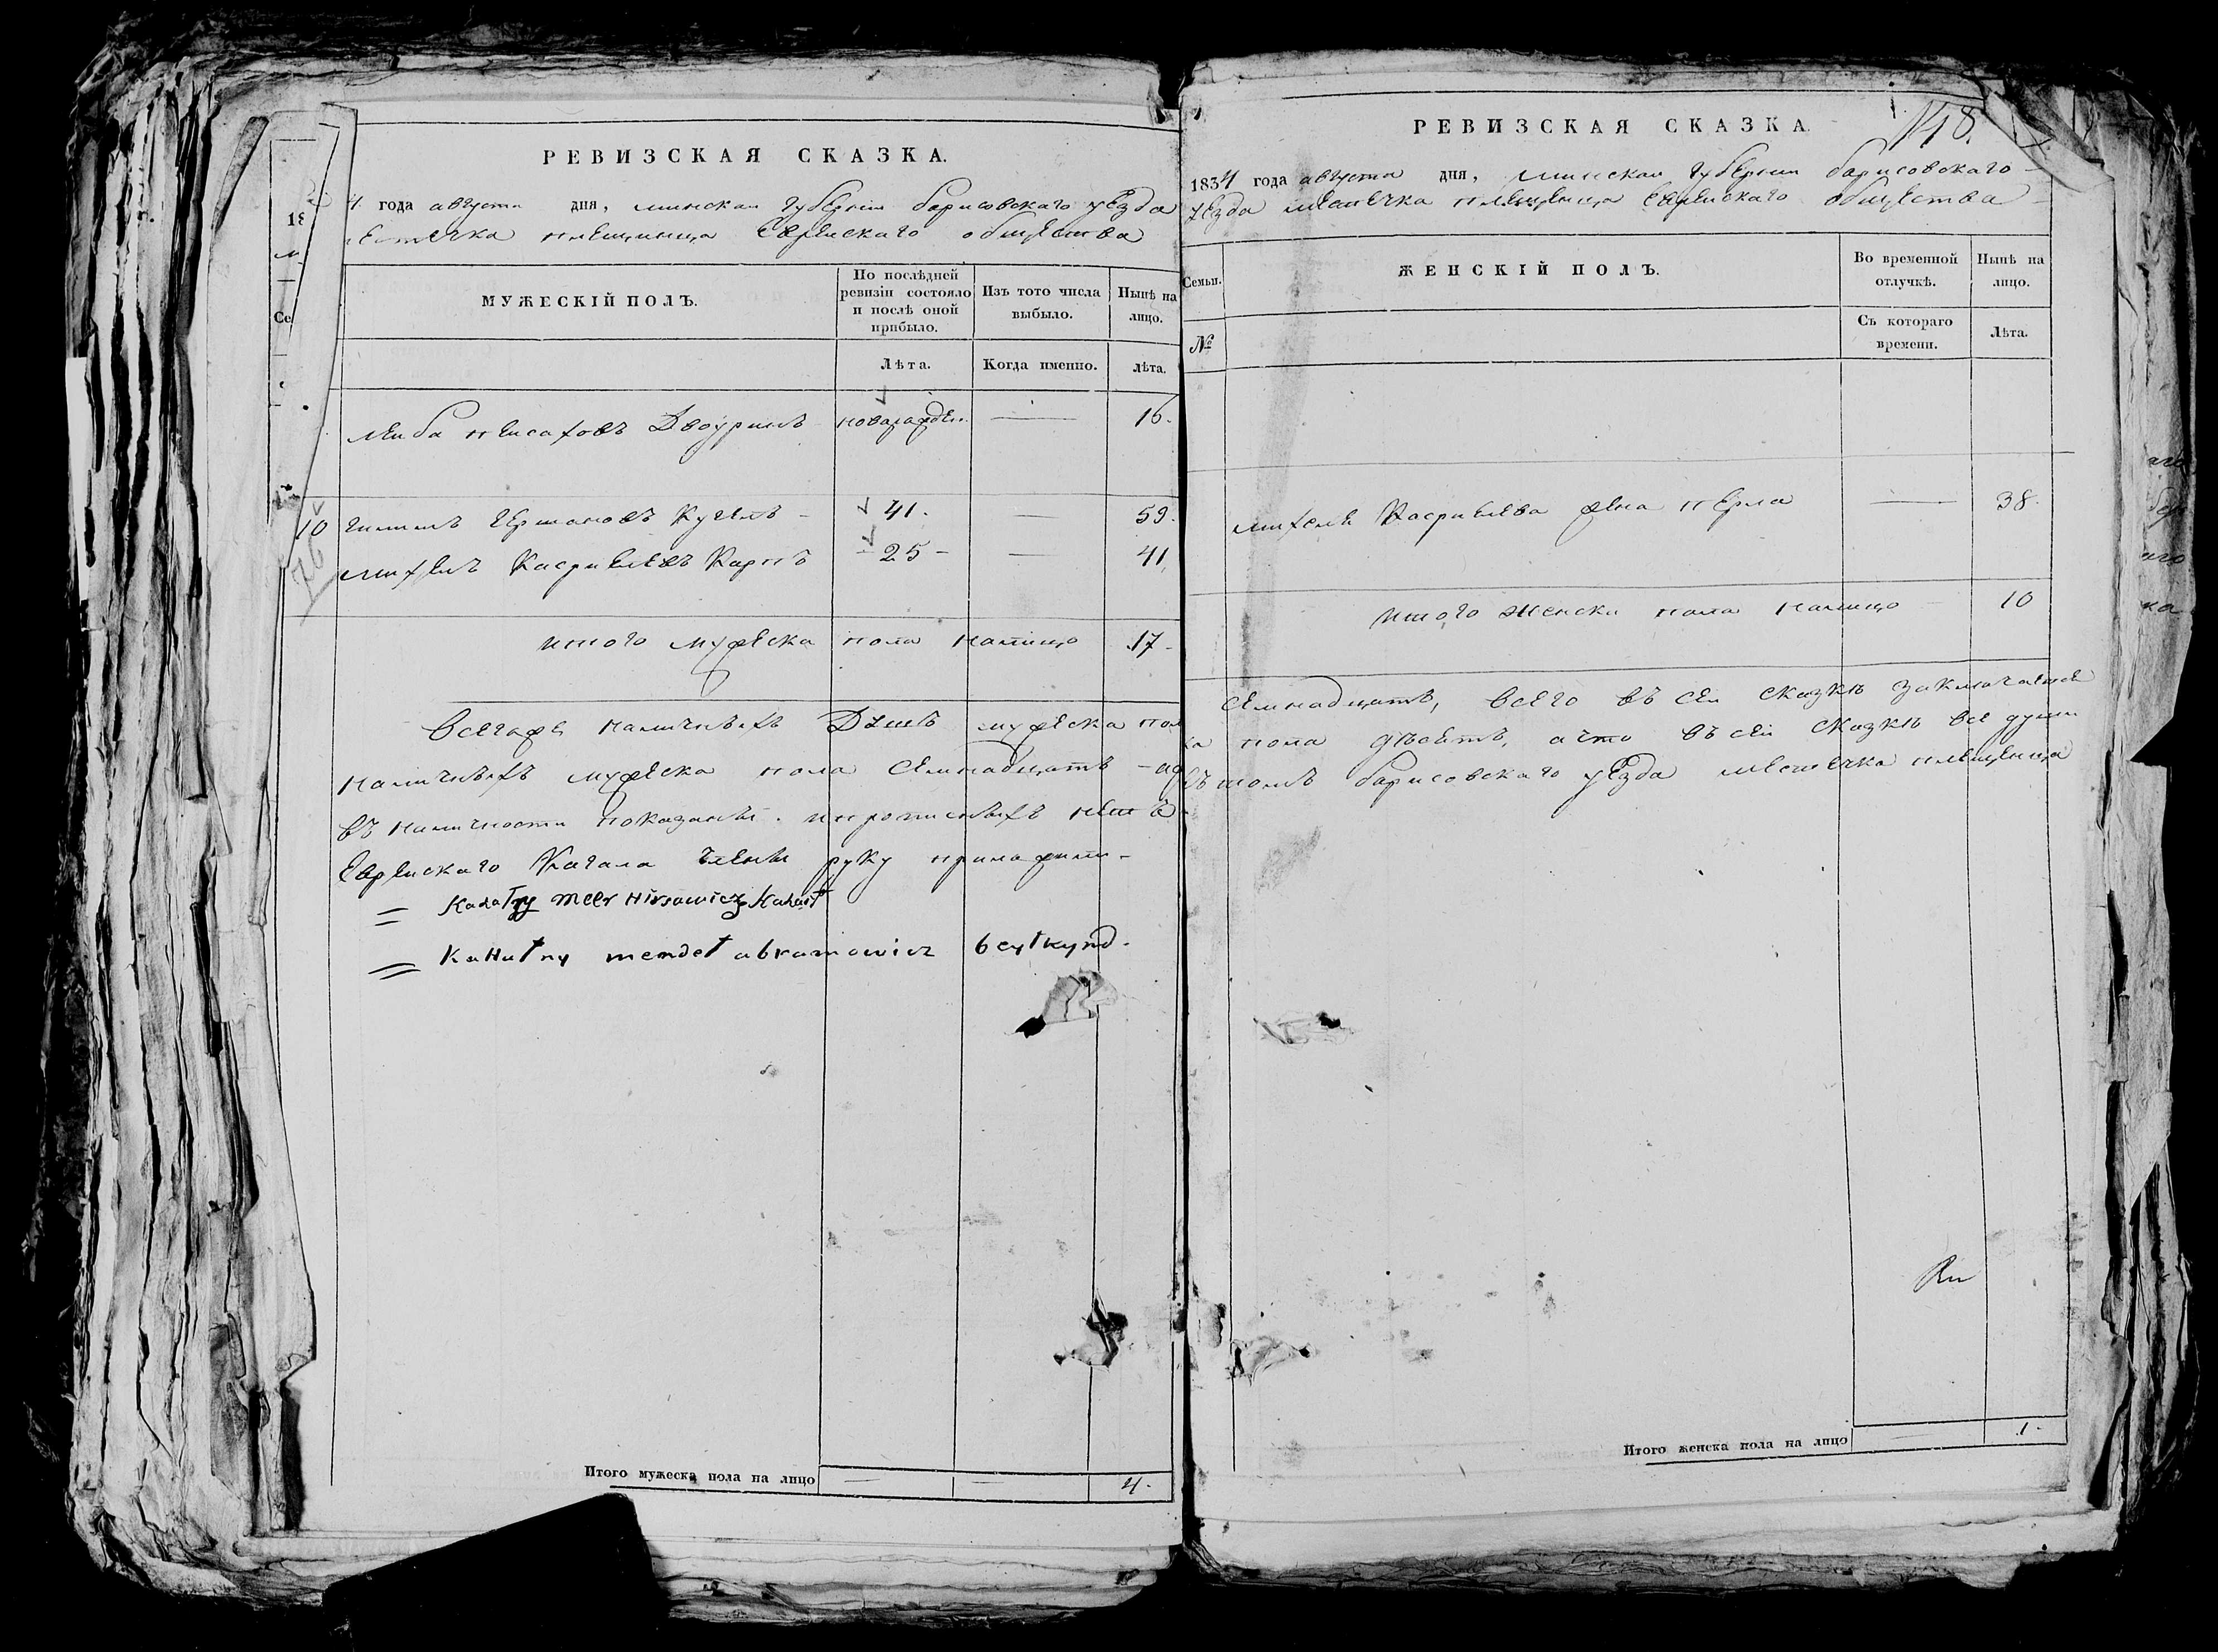 РЕВИЗСКАЯ СКАЗКА.
4 года августа дня, минской губернии борисовского уезда
местечка плещеница еврейского общества
МУЖЕСКІЙ ПОЛЪ.
По послѣдней ревизіи состояло и послѣ оной прибыло.
Изъ того числа выбыло.
Нынѣ на лицо.
Лѣта.
Когда именно.
лѣта.
Лейба Пейсаховъ Двоуринъ новарожден. — 16.
10 Гершоновъ Кугель - 41. — 59.
76
Михель Касриелевъ Карпъ - 25 - — 41.
итого мужеска пола налицо 17 -
Всегаже наличныхъ Душъ мужеска пол
наличныхъ мужеска пола Семнадцать -
въ наличности показаны. прописныхъ нетъ
Еврейскаго Кагала члены руку приложили -
= Kahalny Meer Hirsowicz
= Kahalny mendel abramowicz beylkynd.
Итого мужеска пола на лицо — — 4.
РЕВИЗСКАЯ СКАЗКА.
148.
1834 года августа дня, минской губернии борисовского
уезда местечка плещеница еврейского общества
Семьи.
ЖЕНСКІЙ ПОЛЪ.
Во временной отлучкѣ.
Нынѣ на лицо.
№
Съ котораго времени.
Лѣта.
Михеля Касриелева жена Перла — 38.
итого женска пола налицо 10
Семнадцать, всего въ сей сказкѣ заключается
ка пола дѣсеть, а что въ сей сказкѣ все души
въ томъ борисовскаго уезда местечка плещеница
Итого женска пола на лицо — 1.